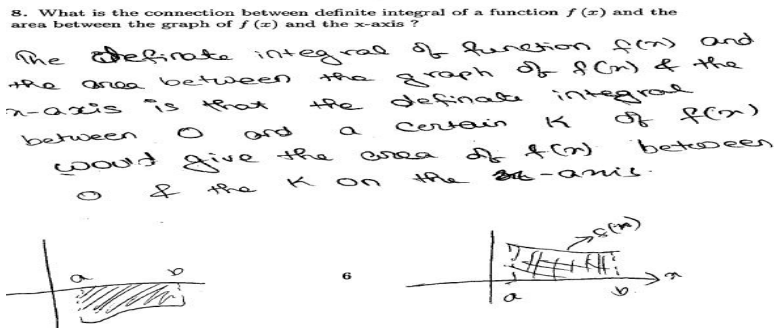 8. What is the connection between definite integral of a function f (x) and the
area between the graph of f (x) and the x-axis ?
The definate integral of function f(x) and
the area between the graph of f(x) & the
x-axis is that the definate integral
between 0 and a certain K of f(x)
would give the area of f(x) between
0 & the K on the x-axis.
f(x)
a b
6
x
a b